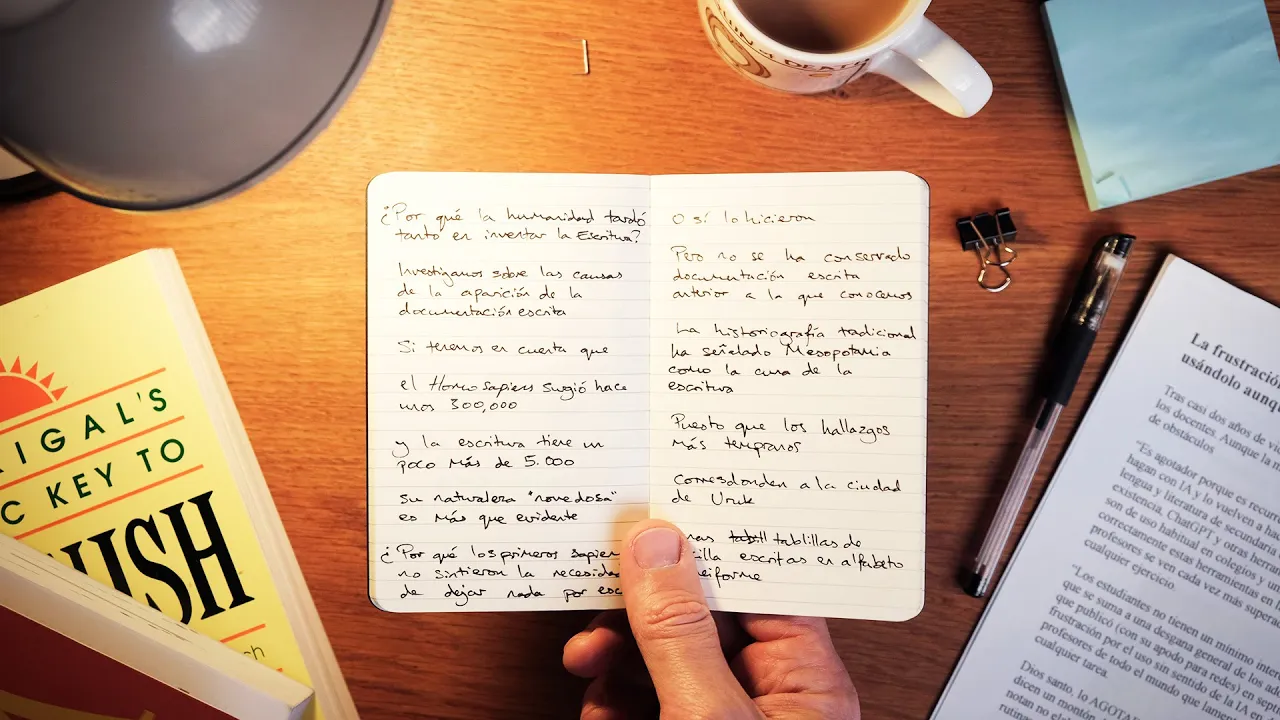 ¿Por qué la humanidad tardó
tanto en inventar la Escritura?
Investigamos sobre las causas
de la aparición de la
documentación escrita
Si tenemos en cuenta que
el Homo sapiens surgió hace
unos 300,000
y la escritura tiene un
poco más de 5.000
su naturaleza "novedosa"
es más que evidente
¿Por qué los primeros sapien
no sintieron la necesida
de dejar nada por esc
O sí lo hicieron
Pero no se ha conservado
documentación escrita
anterior a la que conocemos
La historiografía tradicional
ha señalado Mesopotamia
como la cuna de la
escritura
Puesto que los hallazgos
más tempranos
corresponden a la ciudad
de Uruk
nas tablillas de
cilla escritas en alfabeto
eiforme
IGAL'S
C KEY TO
ISH
DEATH
La frustración
usándolo aunq
Tras casi dos años de v
los docentes. Aunque la
de obstáculos
"Es agotador porque es recur
hagan con IA y lo vuelven a ha
lengua y literatura de secundari
existencia. ChatGPT y otras herra
son de uso habitual en colegios y u
correctamente estas herramientas en
profesores se ven cada vez más supera
cualquier ejercicio.
"Los estudiantes no tienen un mínimo inter
que se suma a una desgana general de los ad
que publicó (con su apodo para redes) en sept
frustración por el uso sin sentido de la IA en
profesores de todo el mundo que lamen
cualquier tarea.
Dios santo, lo AGOTA
dicen un montón
notan no el
rutina